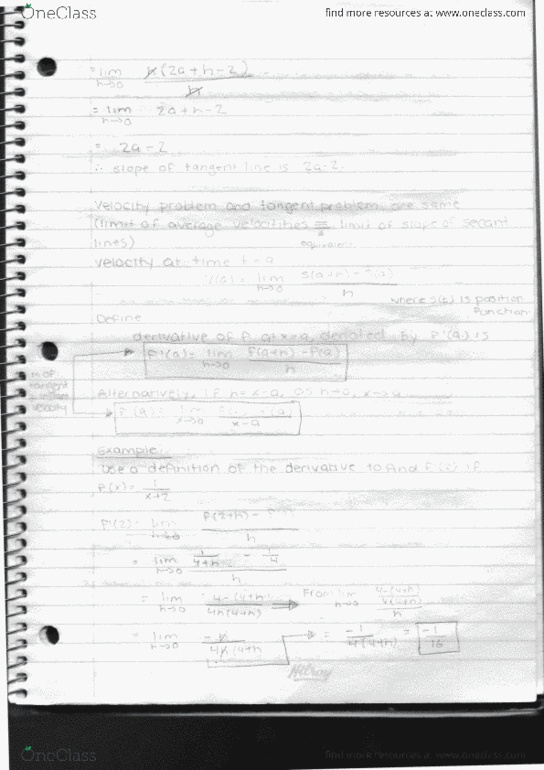 OneClass
find more resources at www.oneclass.com
= lim h→0 h(2a+h-2) / h
= lim h→0 2a+h-2
= 2a-2
∴ slope of tangent line is 2a-2
Velocity problem and tangent problem are same
(limit of average velocities = limit of slope of secant
lines)
equivalent
velocity at time t=a
lim h→0 s(a+h)-s(a) / h
where s(t) is position
function
Define
derivative of f at x=a, denoted by f'(a) is
f'(a) = lim h→0 f(a+h)-f(a) / h
m of
tangent
velocity
Alternatively, if h=x-a, as h→0, x→a
f'(a) = lim x→a f(a) / x-a
Example:
Use a definition of the derivative to find f'(2) if
f(x) = 1/x+2
f'(2) = lim h→0 f(2+h)- / h
= lim h→0 1/4+h - 1/4 / h
= lim h→0 4-(4+h) / 4h(4+h) → From lim h→0 4-(4+h) / 4(4+h) / h
= lim h→0 -h / 4h(4+h → = -1 / 4(4+h) = -1/16
Hilroy
OneClass
find more resources at www.oneclass.com